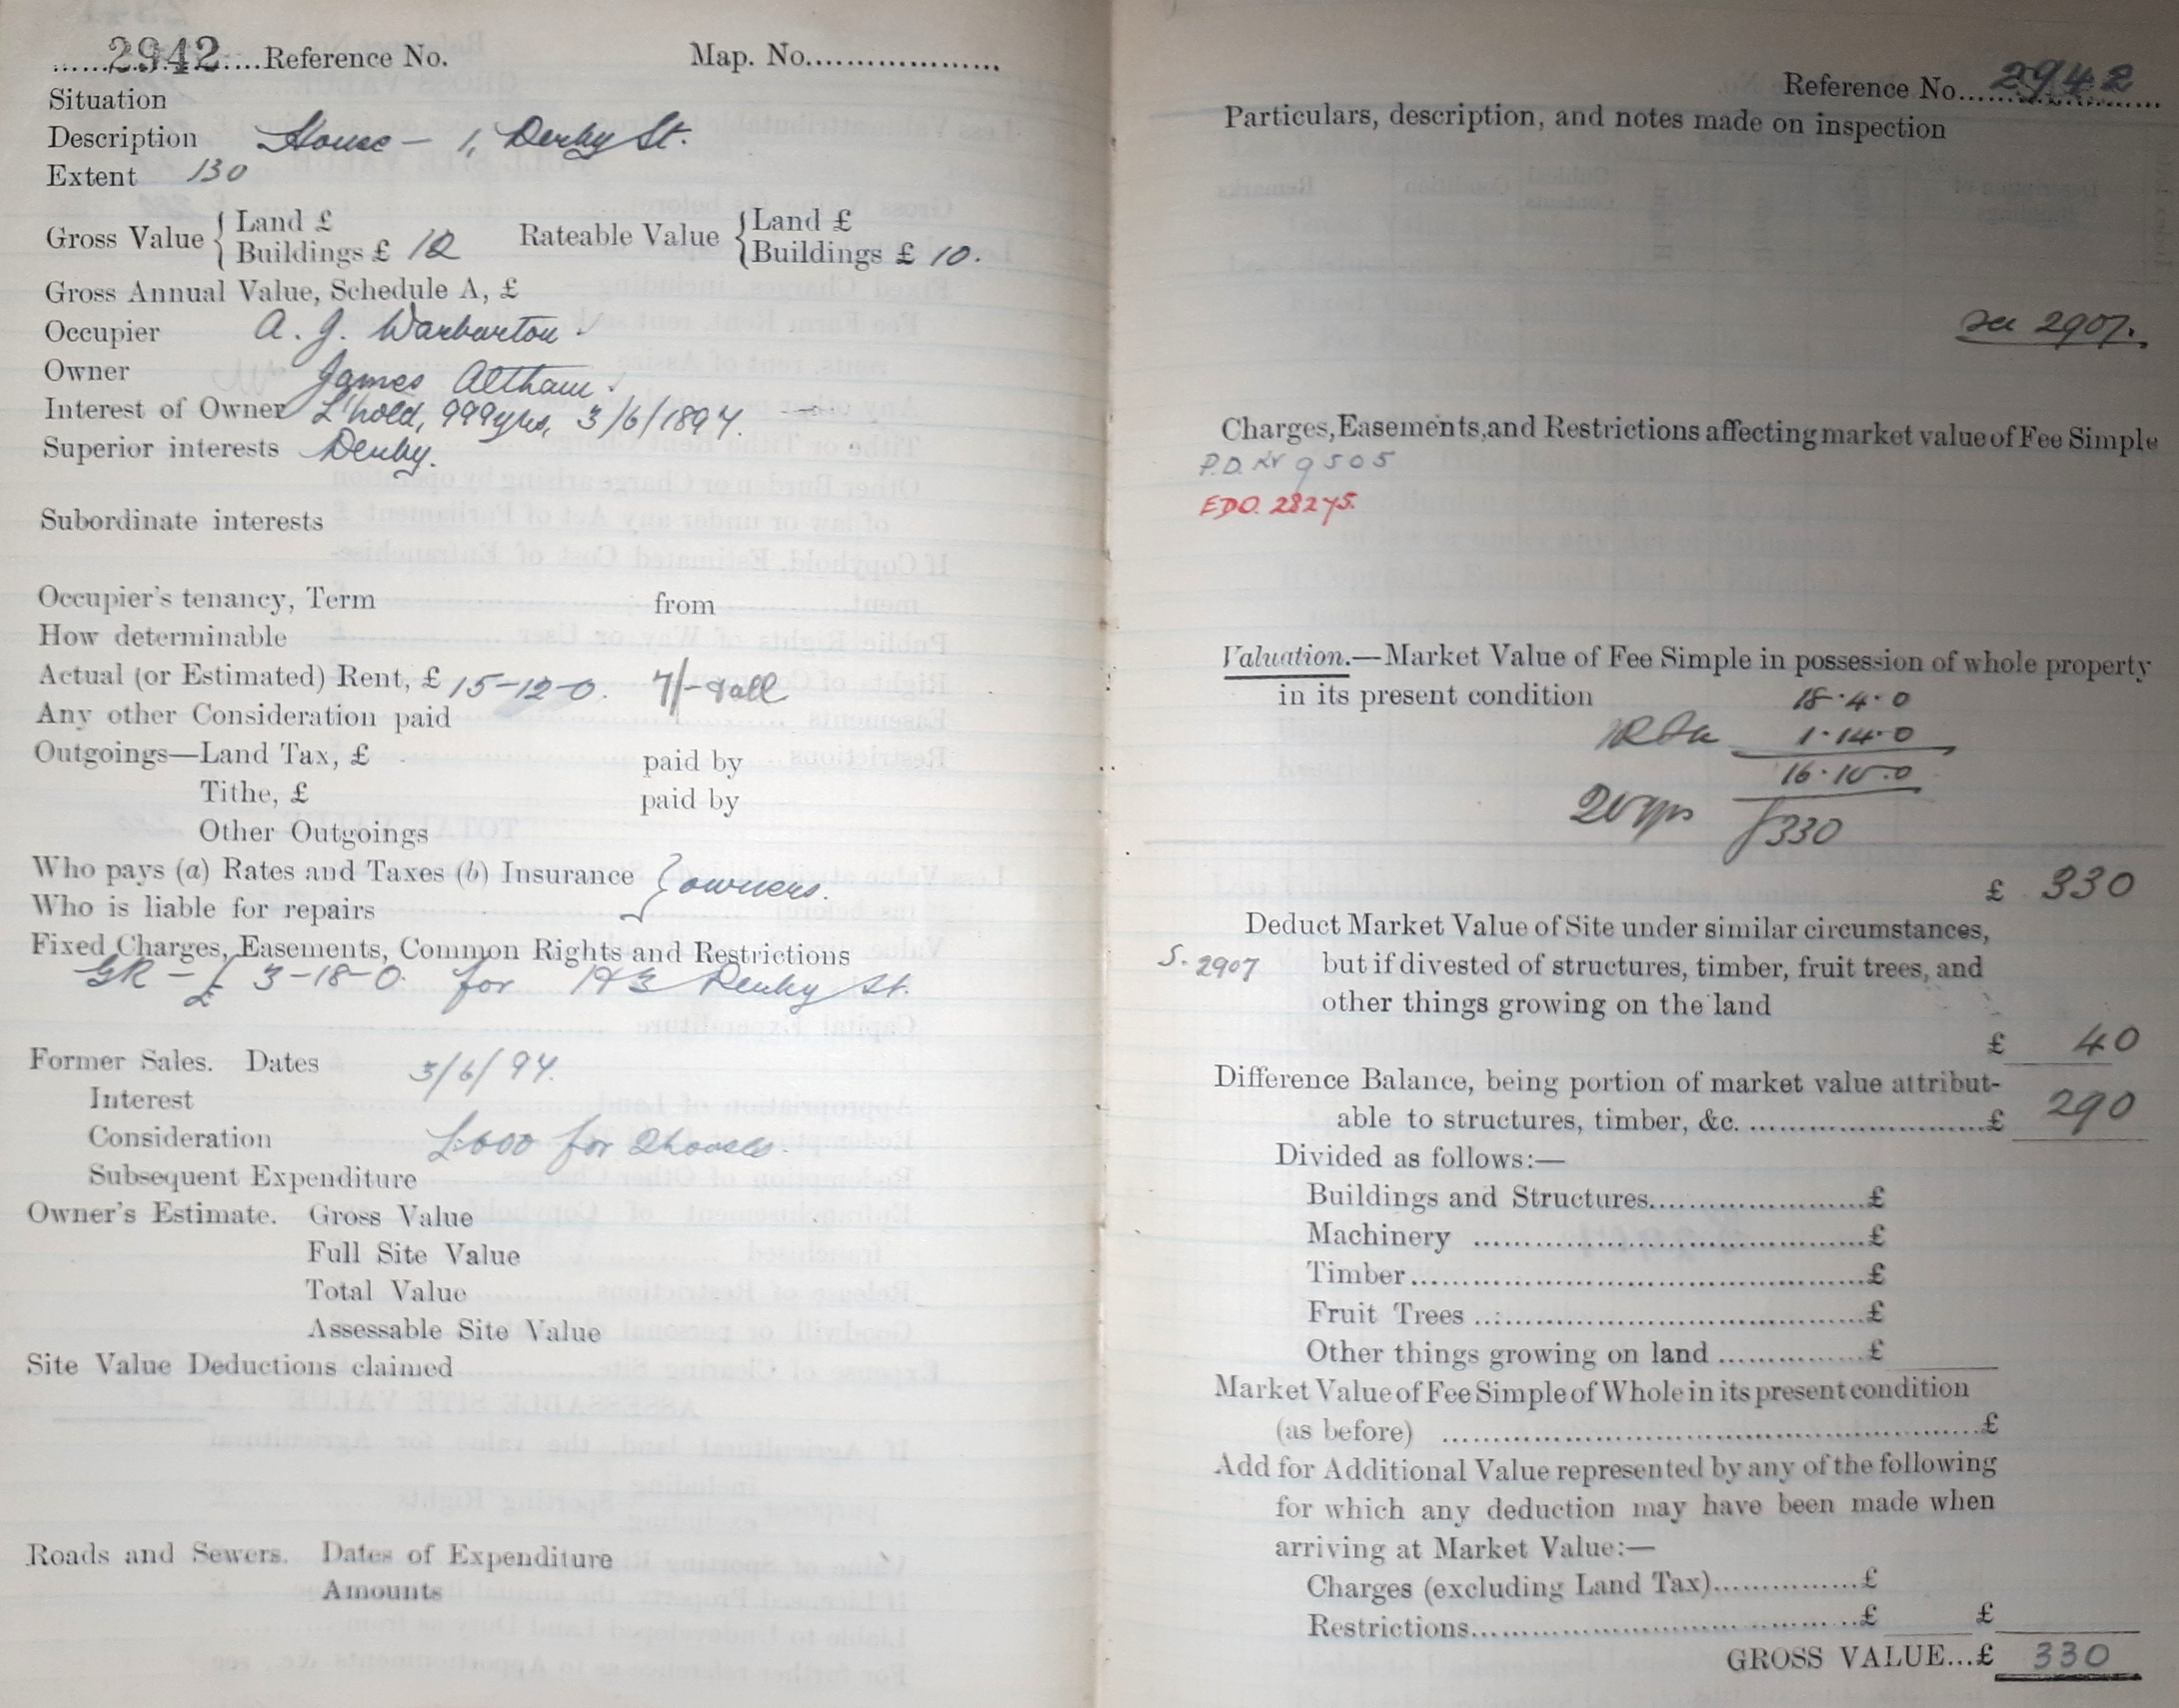 2942 Reference No. Map. No.
Situation
Description House – 1, Derby St.
Extent 130
Gross Value { Land £
Buildings £ 12
Rateable Value { Land £
Buildings £ 10.
Gross Annual Value, Schedule A, £
Occupier A. J. Warburton
Owner James Altham.
Interest of Owner L'hold, 999 yrs, 3/6/1894.
Superior interests Derby.
Subordinate interests
Occupier's tenancy, Term from
How determinable
Actual (or Estimated) Rent, £ 15-12-0. 7/-
Any other Consideration paid
Outgoings—Land Tax, £ paid by
Tithe, £ paid by
Other Outgoings
Who pays (a) Rates and Taxes (b) Insurance } owners.
Who is liable for repairs
Fixed Charges, Easements, Common Rights and Restrictions
GR – £ 3-18-0. for 1 & 3 Derby St.
Former Sales. Dates 3/6/94.
Interest
Consideration £600 for 2 houses.
Subsequent Expenditure
Owner's Estimate. Gross Value
Full Site Value
Total Value
Assessable Site Value
Site Value Deductions claimed
Roads and Sewers. Dates of Expenditure
Amounts
Reference No. 2942
Particulars, description, and notes made on inspection
see 2907.
Charges, Easements, and Restrictions affecting market value of Fee Simple
P.D. 9505
EDO. 28275.
Valuation.—Market Value of Fee Simple in possession of whole property
in its present condition
18.4.0
1.14.0
16.10.0
20 yrs £330
£ 330
Deduct Market Value of Site under similar circumstances,
S. 2907 but if divested of structures, timber, fruit trees, and
other things growing on the land
£ 40
Difference Balance, being portion of market value attribut-
able to structures, timber, &c. £ 290
Divided as follows:—
Buildings and Structures £
Machinery £
Timber £
Fruit Trees £
Other things growing on land £
Market Value of Fee Simple of Whole in its present condition
(as before) £
Add for Additional Value represented by any of the following
for which any deduction may have been made when
arriving at Market Value:—
Charges (excluding Land Tax) £
Restrictions £ £
GROSS VALUE...£ 330